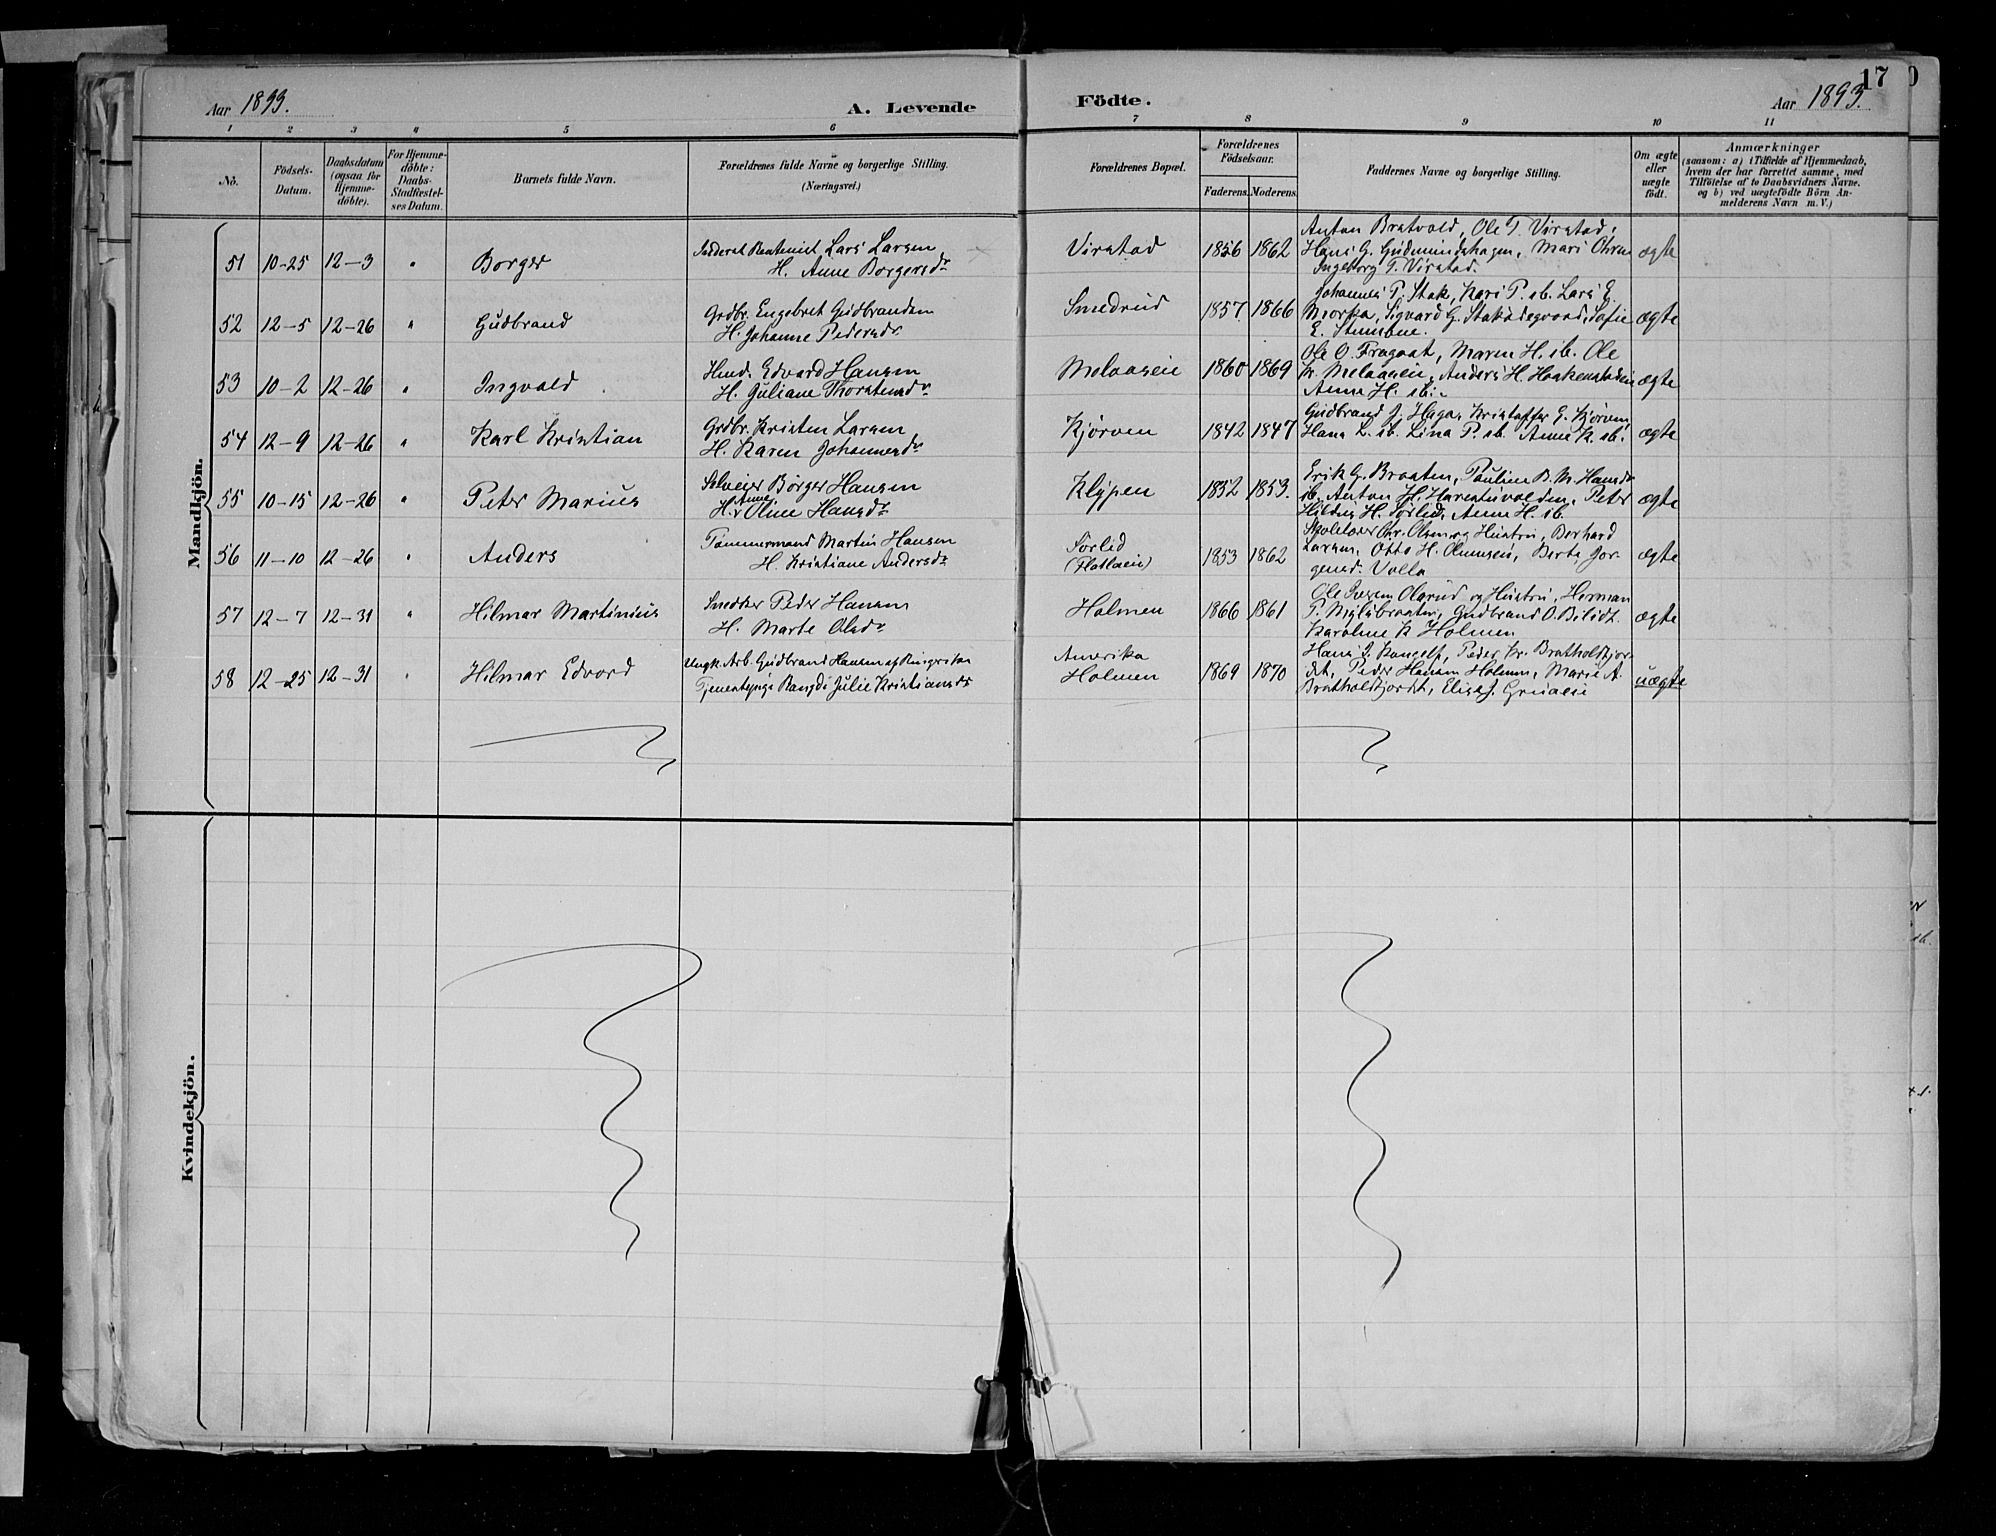 Aar 1893.
A. Levende
Födte.
Aar 1893.
17
1 2 3 4 5 6 7 8 9 10 11
No.
Födsels-Datum.
Daabsdatum (ogsaa for Hjemme-döbte).
For Hjemme-döbte: Daabs-Stadfæstel-ses Datum.
Barnets fulde Navn.
Forældrenes fulde Navne og borgerlige Stilling. (Næringsvei.)
Forældrenes Bopæl.
Forældrenes Födselsaar.
Faderens. Moderens.
Faddernes Navne og borgerlige Stilling.
Om ægte eller uægte födt.
Anmærkninger
(saasom: a) i Tilfælde af Hjemmedaab, hvem der har forrettet samme, med Tilföielse af to Daabsvidners Navne. og b) ved uægtefödte Börn An-melderens Navn m. V.)
Mandkjön.
51 10-25 12-3 " Borger
Lars Larsen
H. Anne Borgersdr
Virstad 1856 1862
Anton Bratvold, Ole T. Virstad,
Hans G. Gudmundshagen, Mari
Ingeborg T. Virstad.
ægte
52 12-5 12-26 " Gudbrand
Grdbr. Engebret Gudbrandsen
H. Johanne Pedersdr
Smedrud 1857 1866
Johannes P. Stak, Kari P. ib. Lars E.
Morka, Sigvard G. Sofie
E.
ægte
53 10-2 12-26 " Ingvald
Husmd. Edvard Hansen
H. Juliane Thorstensdr
Melaaseie 1860 1869
Ole O. Maren H. ib. Ole
Kr. Melaaseie, Anders H.
Anne H. ib.
ægte
54 12-9 12-26 " Karl Kristian
Grdbr. Kristen Larsen
H. Karen Johannesdr
Kjörven 1842 1847
Gudbrand J. Haga, Kristoffer E. Kjörven,
Hans L. ib. Lina P. ib. Anne K. ib.
ægte
55 10-15 12-26 " Peter Marius
Selveier Börger Hansen
H. Anne Oline Hansdr
Klypen 1852 1853.
Erik G. Braaten, Pauline B. M. Hansdr
ib. Anton H. Peter
H. Sörlid, Anne H. ib.
ægte
56 11-10 12-26 " Anders
Tömmermand Martin Hansen
H. Kristiane Andersdr
Sörlid
(Flatlaeie)
1853 1862
Skolelærer Chr. Olsen og Hustru, Berhard
Larsen, Otto H. Berte Jör-
gensd. Volla
ægte
57 12-7 12-31 " Hilmar Martinius
Snedker Peder Hansen
H. Marte Olsdr
Holmen 1866 1861
Ole Iversen Olarud og Hustru, Herman
P. Gudbrand O. Bilidt.
Karoline K Holmen
ægte
58 12-25 12-31 " Hilmar Edvard
Ungk. Arb. Gudbrand Hansen af Ringerike
Tjenestepige Julie Kristiansdr
Amerika
Holmen
1869 1870
Hans J. Peder Kr. Bratholtfjor-
det, Peder Hansen Holmen, Marie A.
Bratholtfjordet, Elise J.
uægte
Kvindekjön.